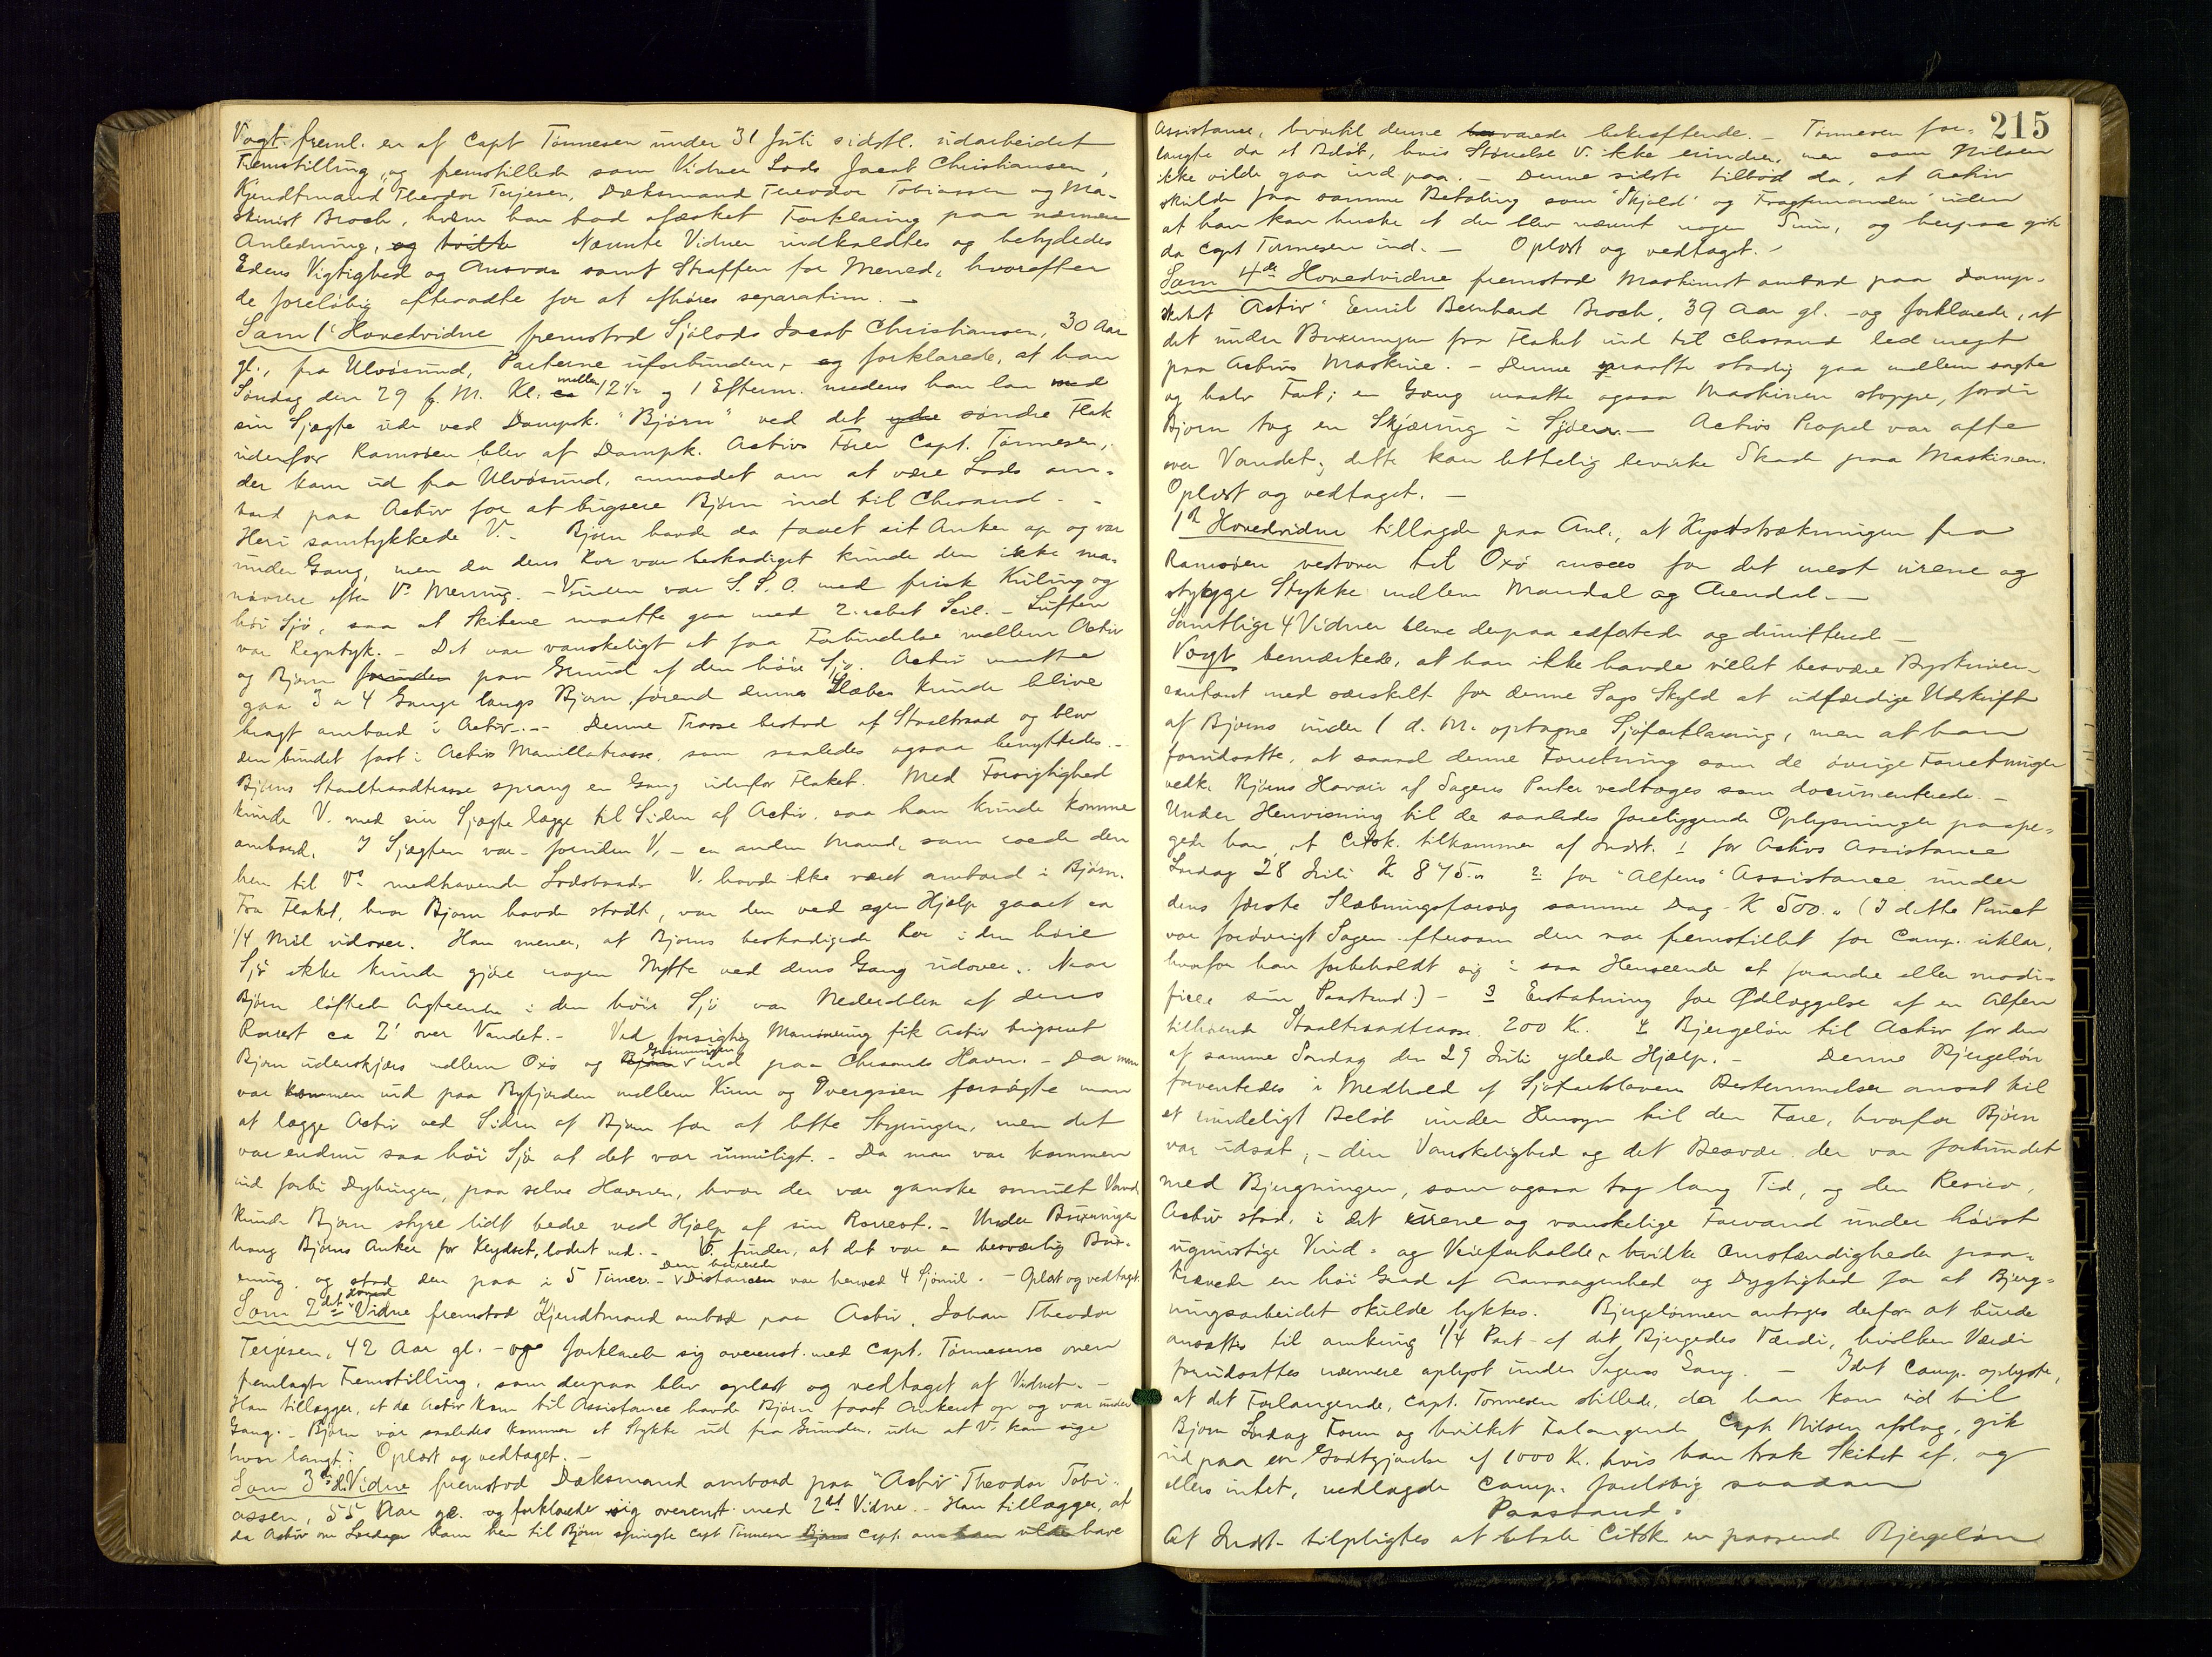 Vogt freml. en af Capt Tönnesen under 31 Juli sidstl. udarbeidet
Fremstilling, og fremstillede som Vidner Lods Jacob Christiansen,
Kjendtmand Theodor Terjesen, Dæksmand Theodor Tobiassen og Ma-
skinist Broch, hvem han bad afæsket Forklaring paa nærmere
Anledning, og hvilke Nævnte Vidner indkaldtes og betydedes
Edens Vigtighed og Ansvar samt Straffen for Mened, hvorefter
de foreløbig aftraadte for at afhøres separatim. —
Som 1ste Hovedvidne fremstod Sjölods Jacob Christiansen, 30 Aar
gl., fra Ulvösund, Parterne uforbunden, og forklarede, at han
Søndag den 29 f. M. Kl. ca mellem 12½ og 1 Efterm. medens han laa med
sin Sjægte ude ved Dampsk. "Bjørn" ved det ydre søndre Flak
udenfor Ramsöen blev af Dampsk. Activs Fører Capt. Tönnesen,
der kom ud fra Ulvösund, anmodet om at være Lods om-
bord paa Activ for at bugsere Björn ind til Chrsand. -
Heri samtykkede V. - Bjørn havde da taaet sit Anker op og var
under Gang, men da dens Ror var beskadiget kunde den ikke ma-
nøvrere efter Vs Mening. - Vinden var S. S. O. med frisk Kuling og
höi Sjö, saa at Skibene maatte gaa med 2-rebet Seil. - Luften
var Regntyk. - Det var vanskeligt at faa Forbindelse mellem Activ
og Bjørn foruden paa Grund af den höie Sjø. Activ maatte
gaa 3 a 4 Gange langs Bjørn, førend dennes Slæber kunde blive
bragt ombord i Activ. - Denne Trosse bestod af Staaltraad og blev
den bundet fast i Activs Manillatrosse, som saaledes ogsaa benyttedes. -
Bjørns Staaltraadtrosse sprang en Gang udenfor Flaket. Med Forsigtighed
kunde V. med sin Sjægte lægge til Siden af Activ, saa han kunde komme
ombord. I Sjægten var - foruden V, - en anden Mand, som roede den
hen til Vs medhavende Lodsbaad. V. havde ikke været ombord i Bjørn.
Fra Flaket, hvor Bjørn havde stødt, var den ved egen Hjælp gaaet ca
1/4 Mil udover. Han mener, at Bjørns beskadigede Ror i den höie
Sjö ikke kunde gjöre nogen Nytte ved dens Gang udover. Naar
Bjørn løftede Agterenden i den höie Sjö var Nederdelen af dens
Rorrest ca 2' over Vandet. - Ved forsigtig Manövrering fik Activ bugseret
Bjørn udenskjærs mellem Oxö og Bjørn Grønningen ind paa Chrsands Havn. - Da man
var kommen ind paa Byfjorden mellem Kinn og Dvergsöen forsøgte man
at lægge Activ ved Siden af Bjørn for at lette Styringen, men det
var endnu saa höi Sjö at det var umuligt. - Da man var kommen
ind forbi Dybingen, paa selve Havnen, hvor der var ganske smult Vand
kunde Bjørn styre lidt bedre ved Hjælp af sin Rorrest. - Under Buxeringen
hang Bjørns Anker for Klydset, loddet ned. - V. finder, at det var en besværlig Bux-
ering, og stod den paa i 5 Timer. - Den buxerede Distancen var herved 4 Sjömil. - Oplæst og vedtaget.
Som 2det Hoved Vidne fremstod Kjendtmand ombord paa Activ, Johan Theodor
Terjesen, 42 Aar gl. - og forklarede sig overenst. med Capt. Tönnesens oven
fremlagte Fremstilling, som derpaa blev oplæst og vedtaget af Vidnet. -
Han tillægger, at da Activ kom til Assistance havde Bjørn faaet Ankeret op og var under
Gang. - Bjørn var saaledes kommen et Stykke ud fra Grunden, uden at V. kan sige
hvor langt. Oplæst og vedtaget. -
Som 3die H. Vidne fremstod Dæksmand ombord paa "Activ" Theodor Tobi-
assen, 55 Aar gl. og forklarede sig overenst. med 2det Vidne. - Han tillægger, at
da Activ om Lördagen kom hen til Bjørn spurgte Capt Tönnesen Bjørns Capt. om han vilde have
215
Assistance, hvortil denne besvarede bekræftende. - Tönnesen for-
langte da et Belöb, hvis Størrelse V. ikke erindrer, men som Nilsen
ikke vilde gaa ind paa. - Denne sidste tilbød da, at Activ
skulde faa samme Betaling som "Skjold" og Fragtmanden uden
at han kan huske at der blev nævnt nogen Sum, og herpaa gik
da Capt Tönnesen ind. - Oplæst og vedtaget. -
Som 4de Hovedvidne fremstod Maskinist ombord paa Damp-
skibet "Activ" Emil Bernhard Broch, 39 Aar gl. - og forklarede, at
det under Buxeringen fra Flaket ind til Chrsand led meget
paa Activs Maskine. - Denne maatte stadig gaa mellem sagte
og halv Fart; en Gang maatte ogsaa Maskinen stoppe, fordi
Bjørn tog en Skjæring i Sjöen. - Activs Propel var ofte
over Vandet; dette kan lettelig bevirke Skade paa Maskinen.
Oplæst og vedtaget. —
1ste Hovedvidne tillagde paa Anl., at Kyststrækningen fra
Ramsöen vestover til Oxö ansees for det mest urene og
stygge Stykke mellem Mandal og Arendal. —
Samtlige 4 Vidner bleve derpaa edfæstede og dimitterede —
Vogt bemærkede, at han ikke havde villet besvære Byskriver-
contoret med særskilt for denne Sags Skyld at udfærdige Udskrift
af Bjørns under 1 d. M. optagne Sjöforklaring, men at han
forudsatte, at saavel denne Forretning som de övrige Forretninger
vedk. Bjørns Havari af Sagens Parter vedtoges som documenterede. -
Under Henvisning til de saaledes foreliggende Oplysninger paape-
gede han, at Citsk. tilkommer af Indst. 1 for Activs Assistance
Lördag 28 Juli Kr 875.„ 2. for "Alfens" Assistance under
dens første Slæbningsforsøg samme Dag - K 500.„ (I dette Punct
var forøvrigt Sagen eftersom den var fremstillet for Comp. uklar,
hvorfor han forbeholdt sig i saa Henseende at forandre eller modi-
ficere sin Paastand.) - 3 Erstatning for Ødlæggelse af en Alfen
tilhørende Staaltraadtrosse. 200 K. 4 Bjergeløn til Activ for den
af samme Søndag den 29 Juli ydede Hjælp. - Denne Bjergeløn
forventedes i Medhold af Sjöfartslovens Bestemmelser ansat til
et rundeligt Beløb under Hensyn til den Fare, hvorfor Bjørn
var udsat, - den Vanskelighed og det Besvær, der var forbundet
med Bjergningen, som ogsaa tog lang Tid, og den Resico,
Activ stod, i det urene og vanskelige Farvand under höist
ugunstige Vind- og Veirforholde, hvilke Omstændigheder paa-
krævede en höi Grad af Aarvaagenhed og Dygtighed for at Bjerg-
ningsarbeidet skulde lykkes. Bjergelønnen antoges derfor at burde
ansættes til omkring 1/4 Part af det Bjergedes Værdi, hvilken Værdi
forudsættes nærmere oplyst under Sagens Gang. — Idet Comp. oplyste,
at det Forlangende, Capt. Tönnesen stillede, da han kom ud til
Bjørn Lördag Form og hvilket Forlangende Capt. Nilsen afslog, gik
ud paa en Godtgjørelse af 1000 K. hvis han trak Skibet af, og
ellers intet, nedlagde Comp. foreløbig saadan
Paastand:
At Indst. tilpligtes at betale Citsk. en passende Bjergeløn